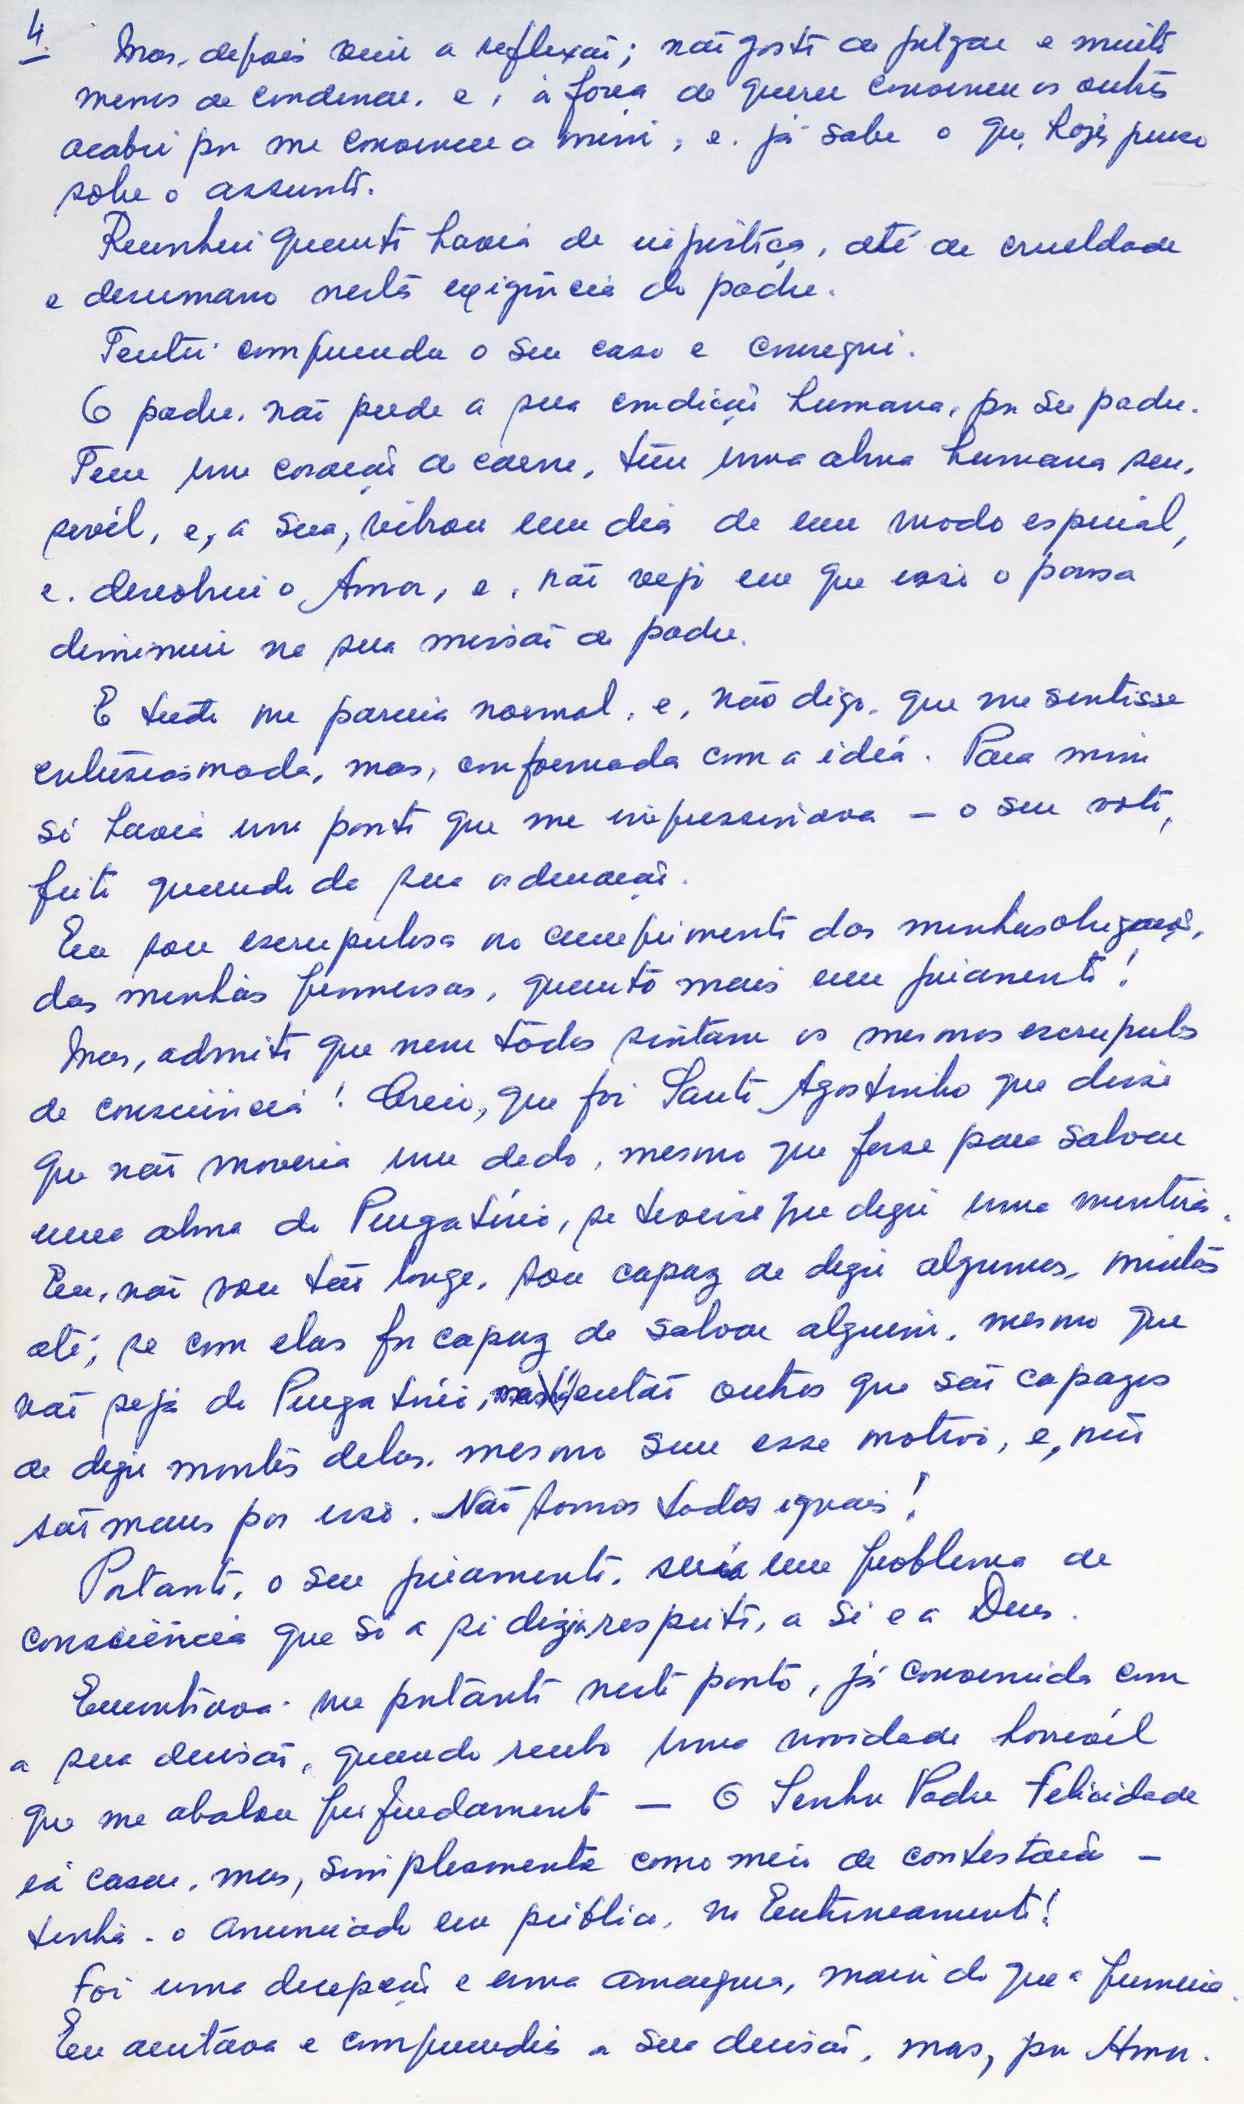 4.
Mas, depois veio a reflexão; não gosto de julgar e muito
menos de condenar, e, à força de querer convencer os outros
acabei por me convencer a mim, e, já sabe o que, hoje, penso
sobre o assunto.
Reconheci quanto havia de injustiça, até de crueldade
e desumano nesta exigência do padre.
Tentei compreender o seu caso e consegui.
O padre, não perde a sua condição humana, por ser padre.
Tem um coração de carne, tem uma alma humana sen,
sível, e, a sua, vibrou um dia de um modo especial,
e, descobriu o Amor, e, não vejo em que isso o possa
diminuir na sua missão de padre.
E tudo me parecia normal, e, não digo, que me sentisse
entusiasmada, mas, conformada com a ideia. Para mim
só havia um ponto que me impressionava – o seu voto,
feito quando da sua ordenação.
Eu sou escrupulosa no cumprimento das minhas obrigações,
das minhas promessas, quanto mais um juramento!
Mas, admito que nem todos sintam os mesmos escrupulos
de consciência! Creio, que foi Santo Agostinho que disse
que não moveria um dedo, mesmo que fosse para salvar
uma alma do Purgatório, se tivesse que dizer uma mentira.
Eu, não vou tão longe, sou capaz de dizer algumas, muitas
até, se com elas for capaz de salvar alguém, mesmo que
não seja do Purgatório, então outros que são capazes
de dizer montes delas, mesmo sem esse motivo, e, não
são maus por isso. Não somos todos iguais!
Portanto, o seu juramento, seria um problema de
consciência que só a si dizia respeito, a si e a Deus.
Encontrava-me portanto neste ponto, já convencida com
a sua decisão, quando recebo uma novidade horrível
que me abalou profundamente – O Senhor Padre Felicidade
ia casar, mas, simplesmente como meio de contestação –
tinha-o anunciado em público, no Entroncamento!
Foi uma decepção e uma amargura, maior do que a primeira.
Eu aceitava e compreendia a sua decisão, mas, por Amor.